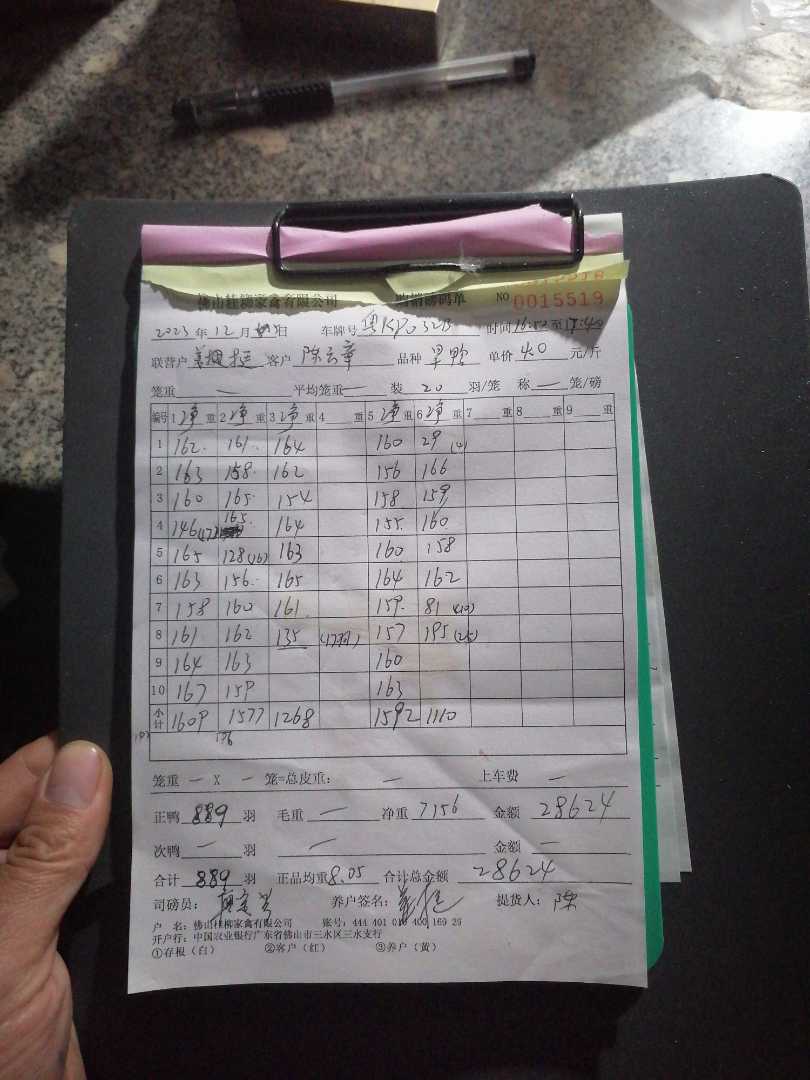 佛山桂柳家禽有限公司 购销磅码单 NO 0015519
2023年12月 日 车牌号 粤KP032B 时间16:52至17:40
联营户 客户 陈云章 品种 旱鸭 单价 4.0 元/斤
笼重 — 平均笼重 — 装 20 羽/笼 称 — 笼/磅
编号 1 净 重 2 净 重 3 净 重 4 重 5 净 重 6 净 重 7 重 8 重 9 重
1 162 161 164 160 29 (4)
2 163 158 162 156 166
3 160 165 154 158 159
4 146(17) 165 164 155 160
5 165 128(16) 163 160 158
6 163 156 165 164 162
7 158 160 161 159 81 (10)
8 161 162 135 (17羽) 157 195(25)
9 164 163 160
10 167 159 163
小计 1609 1577 1268 1592 1110
197 196
笼重 — X — 笼=总皮重: — 上车费 —
正鸭 889 羽 毛重 — 净重 7156 金额 28624
次鸭 — 羽 — 金额 —
合计 889 羽 正品均重 8.05 合计总金额 28624
司磅员: 养户签名: 提货人: 陈
户 名: 佛山桂柳家禽有限公司 账号: 444 401 010 400 169 26
开户行: 中国农业银行广东省佛山市三水区三水支行
①存根（白） ②客户（红） ③养户（黄）